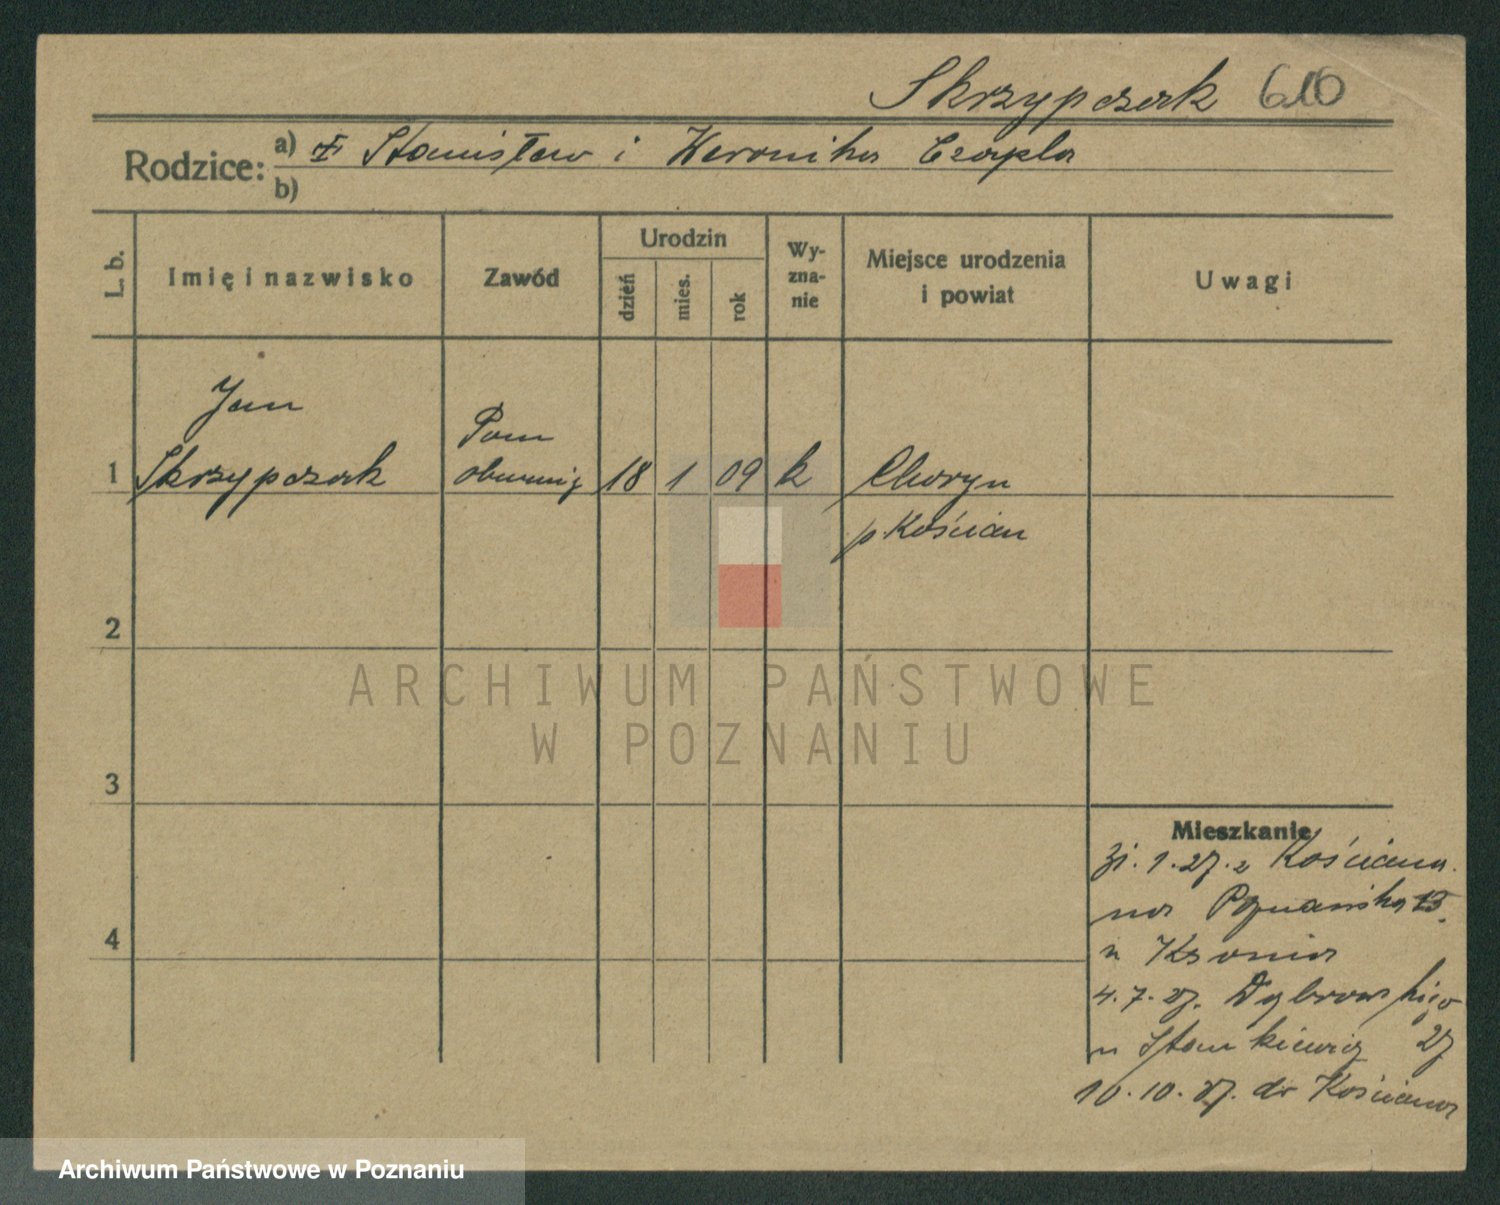 Skrzypczak 610
Rodzice: a) Stanisław i Weronika Czapla
b)
L. b.
Imię i nazwisko
Zawód
Urodzin
dzień
mies.
rok
Wy-
zna-
nie
Miejsce urodzenia
i powiat
Uwagi
Jan
Pom
1 Skrzypczak 18 1 09 k Choryn
p. Kościan
2
ARCHIWUM PAŃSTWOWE
W POZNANIU
3
Mieszkanie
31. 1. 27. z Kościana
na Poznańska 13.
u
4
4. 7. 27. Dąbrowskiego
u Stankiewicz 27
10. 10. 27. do Kościana
Archiwum Państwowe w Poznaniu